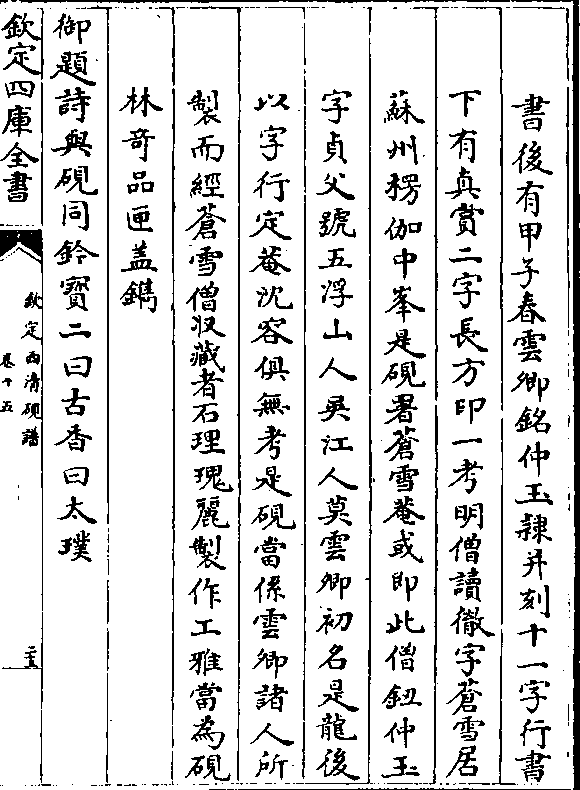 書後有甲子春雲卿銘仲玉隸并刻十一字行書
下有真賞二字長方印一考明僧讀徹字蒼雪居
蘇州楞伽中峯是硯署蒼雪菴或即此僧鈕仲玉
字貞父號五浮山人吳江人莫雲卿初名是龍後
以字行定菴沈容俱無考是硯當係雲卿諸人所
製而經蒼雪僧収藏者石理瑰麗製作工雅當為硯
林竒品匣盖鐫
御題詩與硯同鈐寳二曰古香曰太璞
欽定四庫全書
欽定西清硯譜
卷十五
二十五